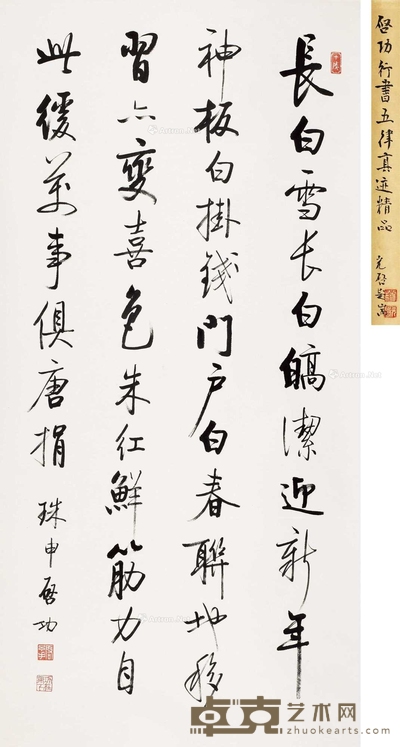 長白雪长白皜潔迎新年
神板白掛錢門户白春聯地移
習亦變喜色朱红鮮筋力自
此缓萬事俱唐捐
珠申啓功
啓功行書五律真迹精品
卓克艺术网
www.zhuokearts.com